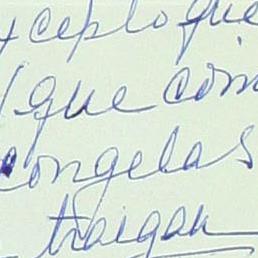 y cepto que
que com
congelas
traigan